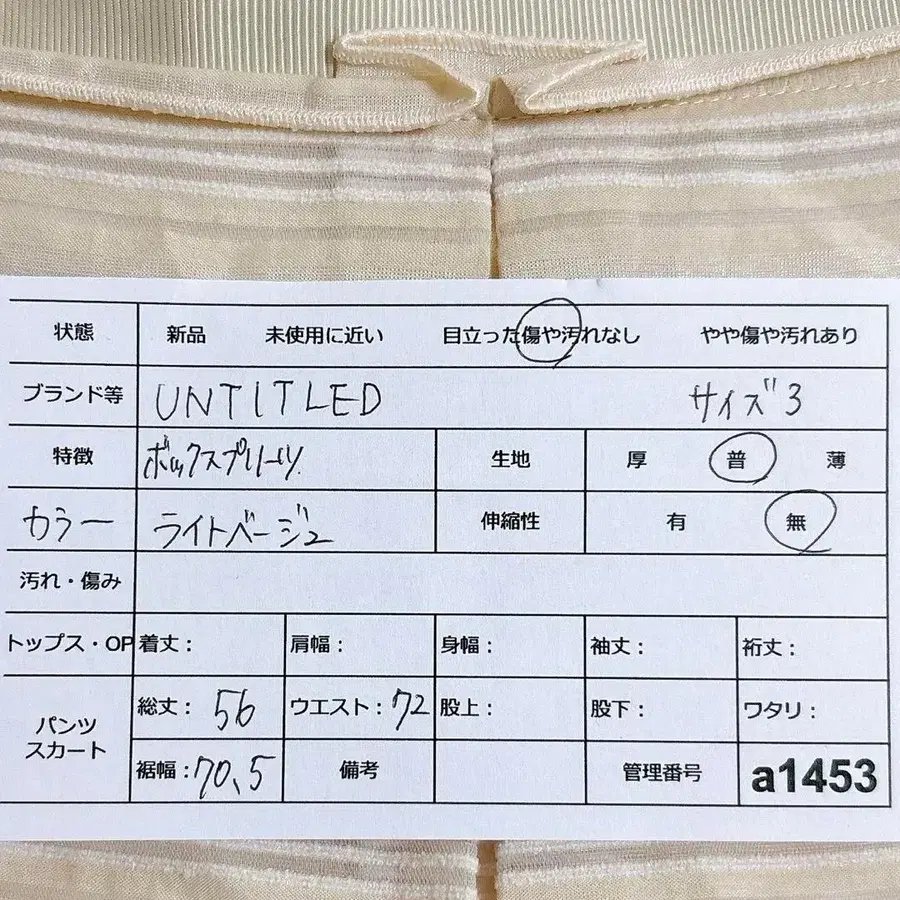 状態 新品 未使用に近い 目立った傷や汚れなし やや傷や汚れあり
ブランド等 UNTITLED サイズ3
特徴 ボックスプリーツ 生地 厚 普 薄
カラー ライトベージュ 伸縮性 有 無
汚れ・傷み
トップス・OP 着丈: 肩幅: 身幅: 袖丈: 裄丈:
パンツ スカート 総丈: 56 ウエスト: 72 股上: 股下: ワタリ:
裾幅: 70.5 備考 管理番号 a1453